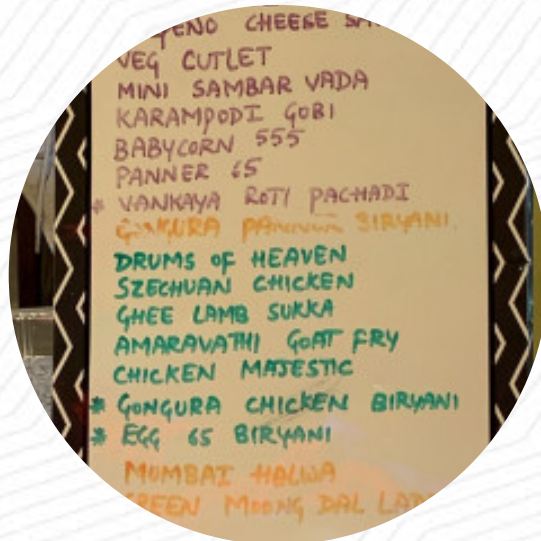 CHEESE
VEG CUTLET
MINI SAMBAR VADA
KARAMPODI GOBI
BABYCORN 555
PANNER 65
* VANKAYA ROTI PACHADI
GONGURA PANNER BIRYANI
DRUMS OF HEAVEN
SZECHUAN CHICKEN
GHEE LAMB SUKKA
AMARAVATHI GOAT FRY
CHICKEN MAJESTIC
* GONGURA CHICKEN BIRYANI
* EGG 65 BIRYANI
MUMBAI HALWA
GREEN MOONG DAL